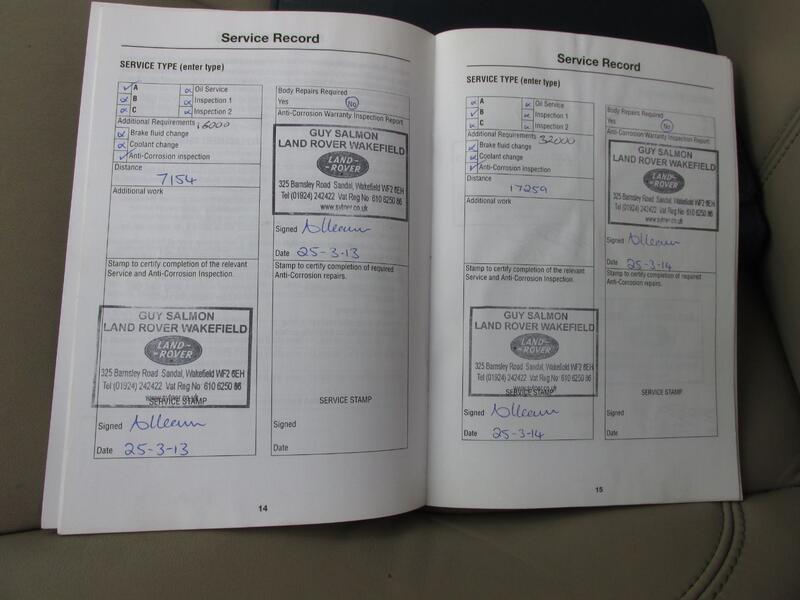 Service Record
SERVICE TYPE (enter type)
A
Oil Service
B
Inspection 1
C
Inspection 2
Additional Requirements 16000
Brake fluid change
Coolant change
Anti-Corrosion inspection
Distance
7154
Additional work
Stamp to certify completion of the relevant
Service and Anti-Corrosion Inspection.
GUY SALMON
LAND ROVER WAKEFIELD
LAND-
-ROVER
325 Barnsley Road Sandal, Wakefield WF2 6EH
Tel (01924) 242422 Vat Reg No 610 6250 86
www.sytner.co.uk
SERVICE STAMP
Signed
Date 25-3-13
Body Repairs Required
Yes No
Anti-Corrosion Warranty Inspection Report
GUY SALMON
LAND ROVER WAKEFIELD
LAND-
-ROVER
325 Barnsley Road Sandal, Wakefield WF2 6EH
Tel (01924) 242422 Vat Reg No 610 6250 86
www.sytner.co.uk
Signed
Date 25-3-13
Stamp to certify completion of required
Anti-Corrosion repairs.
SERVICE STAMP
Signed
Date
14
Service Record
SERVICE TYPE (enter type)
A
Oil Service
B
Inspection 1
C
Inspection 2
Additional Requirements 32000
Brake fluid change
Coolant change
Anti-Corrosion inspection
Distance
17259
Additional work
Stamp to certify completion of the relevant
Service and Anti-Corrosion Inspection.
GUY SALMON
LAND ROVER WAKEFIELD
LAND-
-ROVER
325 Barnsley Road Sandal, Wakefield WF2 6EH
Tel (01924) 242422 Vat Reg No 610 6250 86
www.sytner.co.uk
SERVICE STAMP
Signed
Date 25-3-14
Body Repairs Required
Yes No
Anti-Corrosion Warranty Inspection Report
GUY SALMON
LAND ROVER WAKEFIELD
LAND-
-ROVER
325 Barnsley Road Sandal, Wakefield WF2 6EH
Tel (01924) 242422 Vat Reg No 610 6250 86
www.sytner.co.uk
Signed
Date 25-3-14
Stamp to certify completion of required
Anti-Corrosion repairs.
SERVICE STAMP
Signed
Date
15